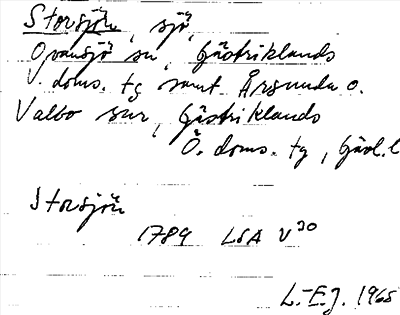 Storsjön, sjö,
Ovansjö sn, Gästriklands
V. doms. tg samt Årsunda o.
Valbo snr, Gästriklands
Ö. doms. tg, Gävl. l
Storsjön
1789 LSA V30
L.-E.J. 1965